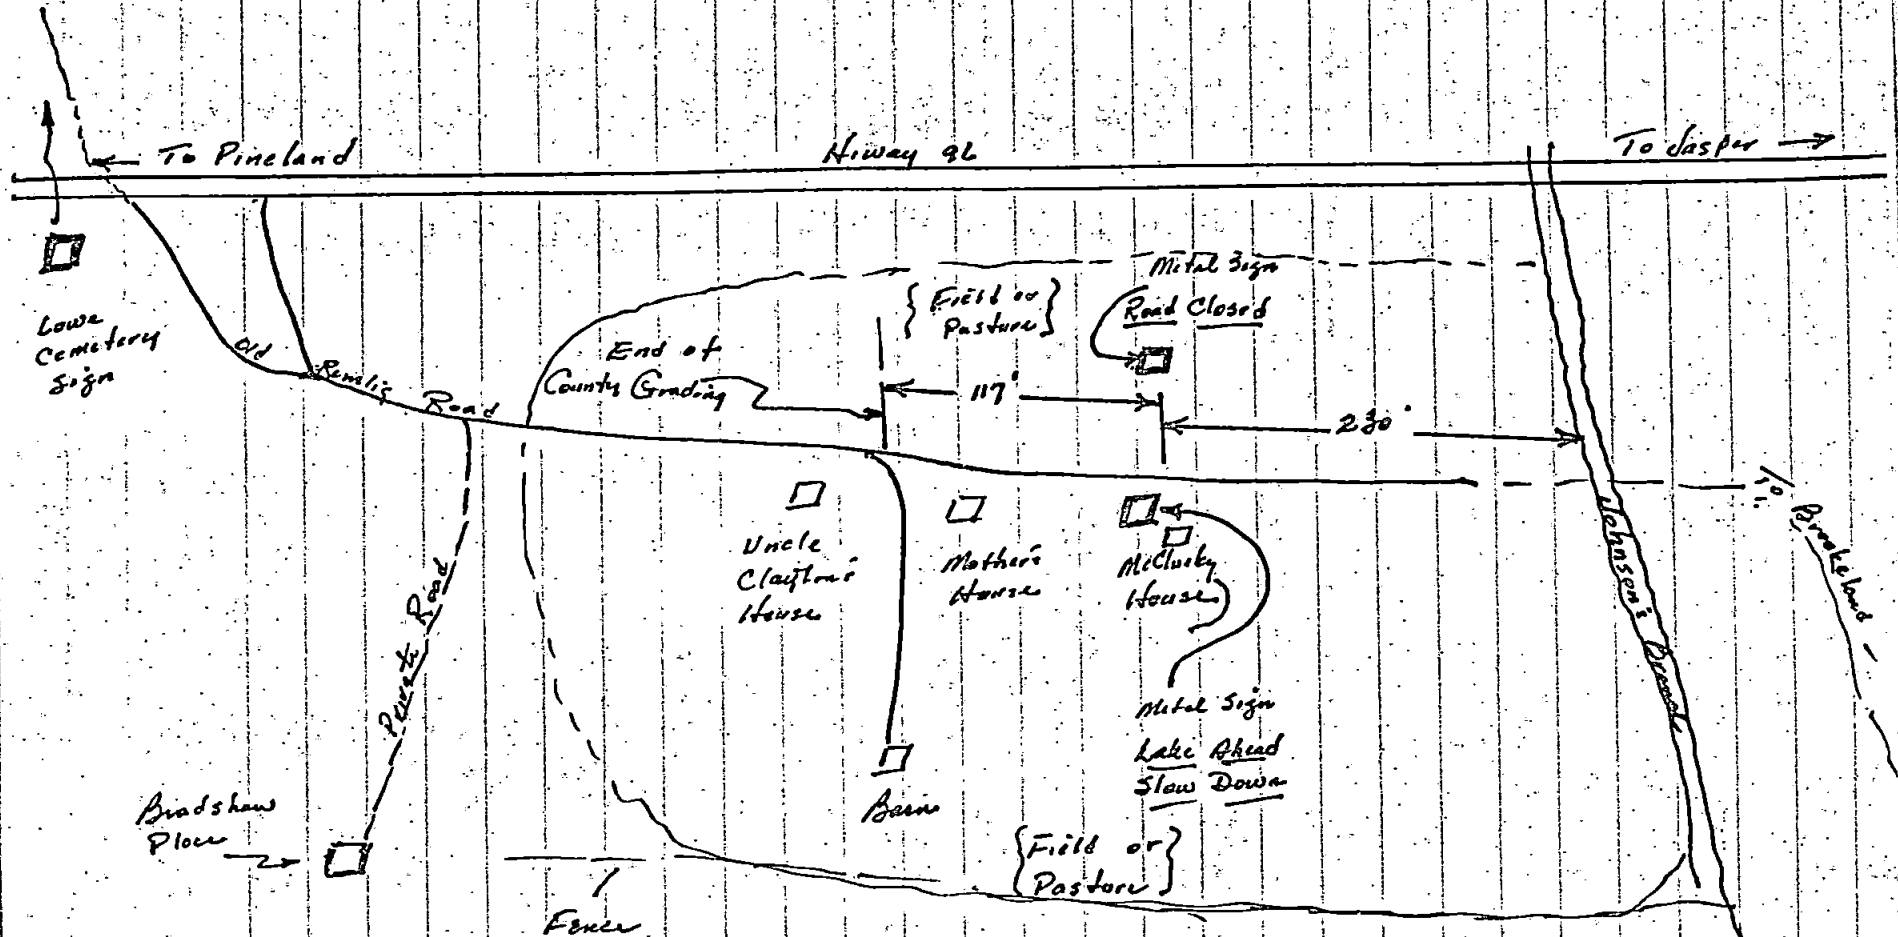 To Pineland
Hiway 96
To Jasper
Lowe
Cemetery
Sign
Old Remlig Road
End of
County Grading
{Field or
Pasture}
Metal Sign
Road Closed
117'
230'
To Brookeland
Johnson's Branch
Private Road
Uncle
Clayton's
House
Mother's
House
McClusky
House
Metal Sign
Lake Ahead
Slow Down
Barn
Bradshaw
Place
Fence
{Field or
Pasture}